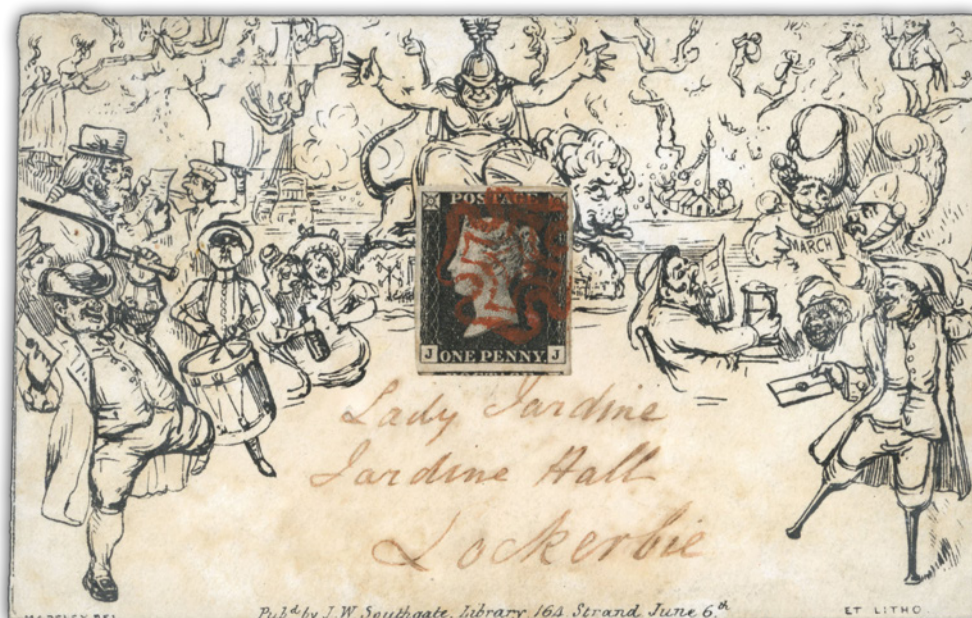 MARCH
POSTAGE
J ONE PENNY J
Lady Jardine
Jardine Hall
Lockerbie
Pubd by J. W. Southgate, Library, 164, Strand, June 6th
ET LITHO.